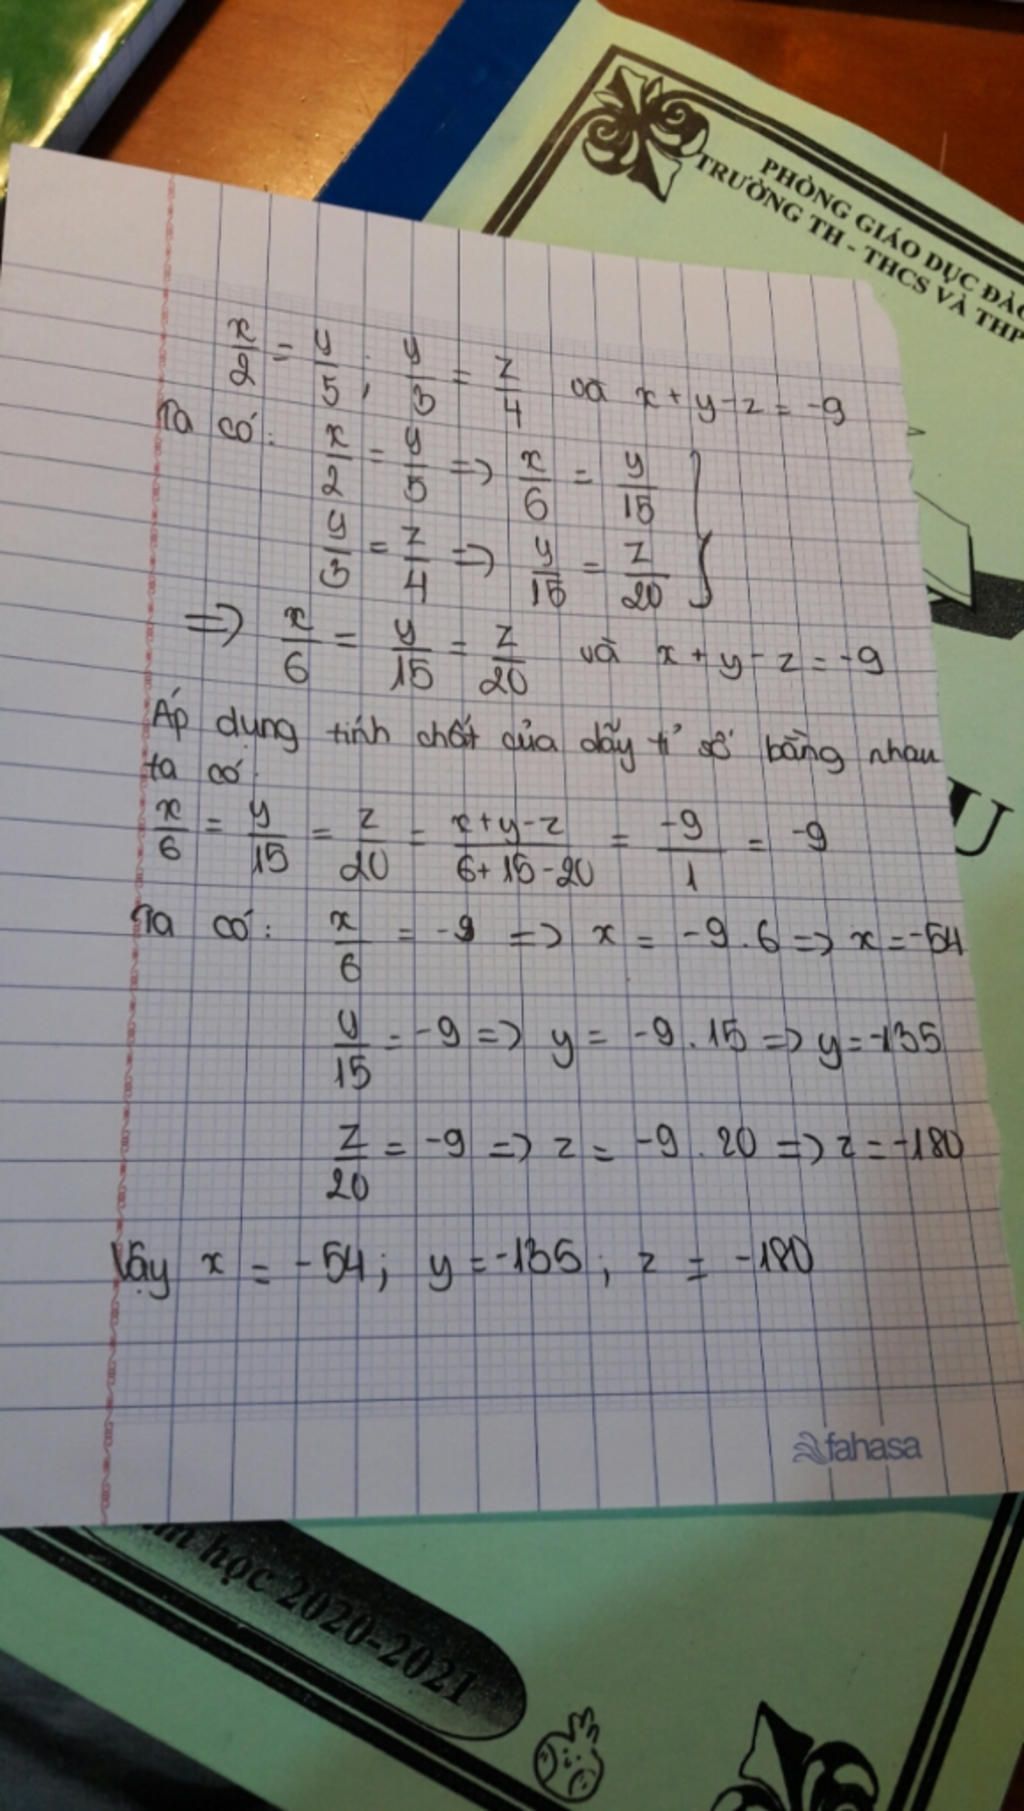 PHÒNG GIÁO DỤC ĐÀO
TRƯỜNG TH - THCS VÀ THP
x/2 = y/5 ; y/3 = z/4 và x + y - z = -9
Ta có: x/2 = y/5 => x/6 = y/15 }
y/3 = z/4 => y/15 = z/20 }
=> x/6 = y/15 = z/20 và x + y - z = -9
Áp dụng tính chất của dãy tỉ số bằng nhau
ta có:
x/6 = y/15 = z/20 = x+y-z/6+15-20 = -9/1 = -9
Ta có: x/6 = -9 => x = -9 . 6 => x = -54
y/15 = -9 => y = -9 . 15 => y = -135
z/20 = -9 => z = -9 . 20 => z = -180
Vậy x = -54 ; y = -135 ; z = -180
fahasa
học 2020-2021